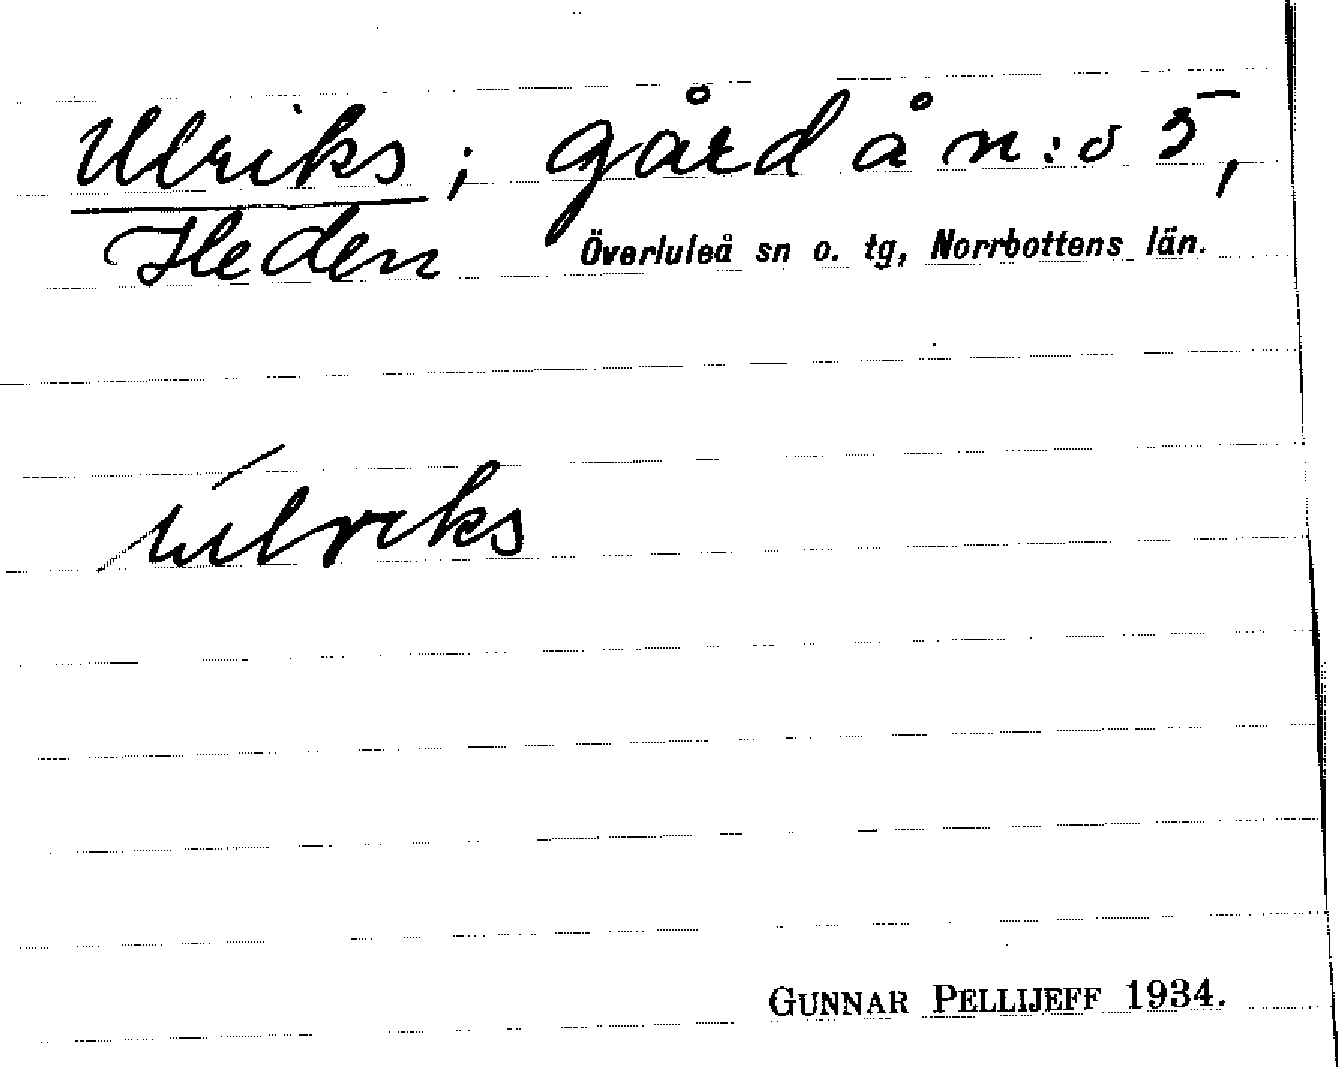 Ulriks; gård å n:o 5,
Heden Överluleå sn o. tg, Norrbottens län.
úlriks
GUNNAR PELLIJEFF 1934.